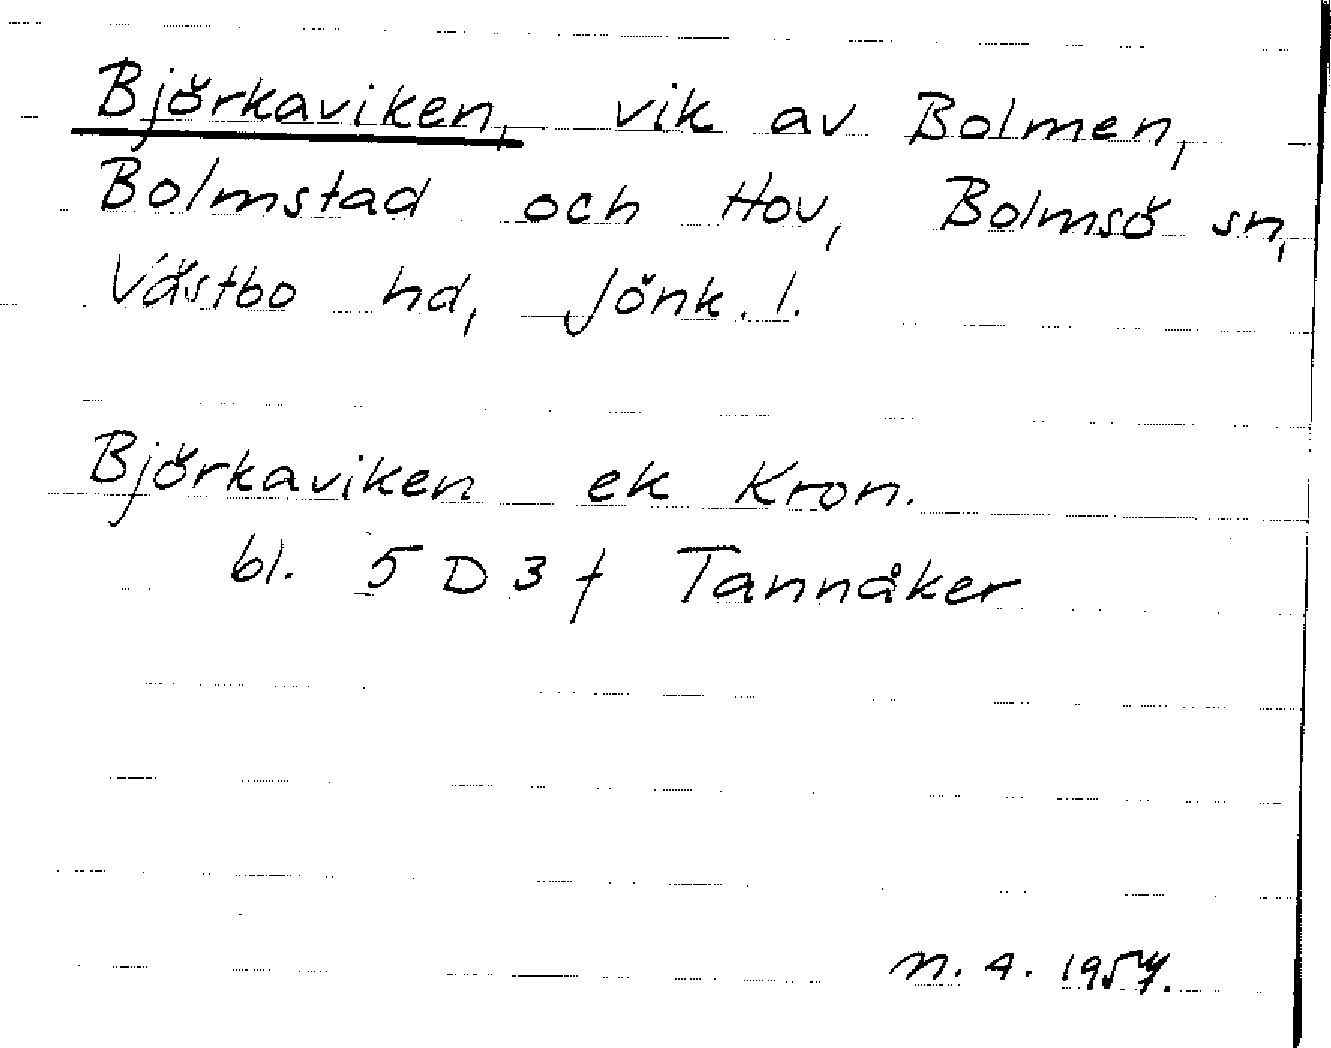 Björkaviken, vik av Bolmen,
Bolmstad och Hov, Bolmsö sn,
Västbo hd, Jönk. l.
Björkaviken ek Kron.
bl. 5 D 3 f Tannåker
n. 4. 1957.